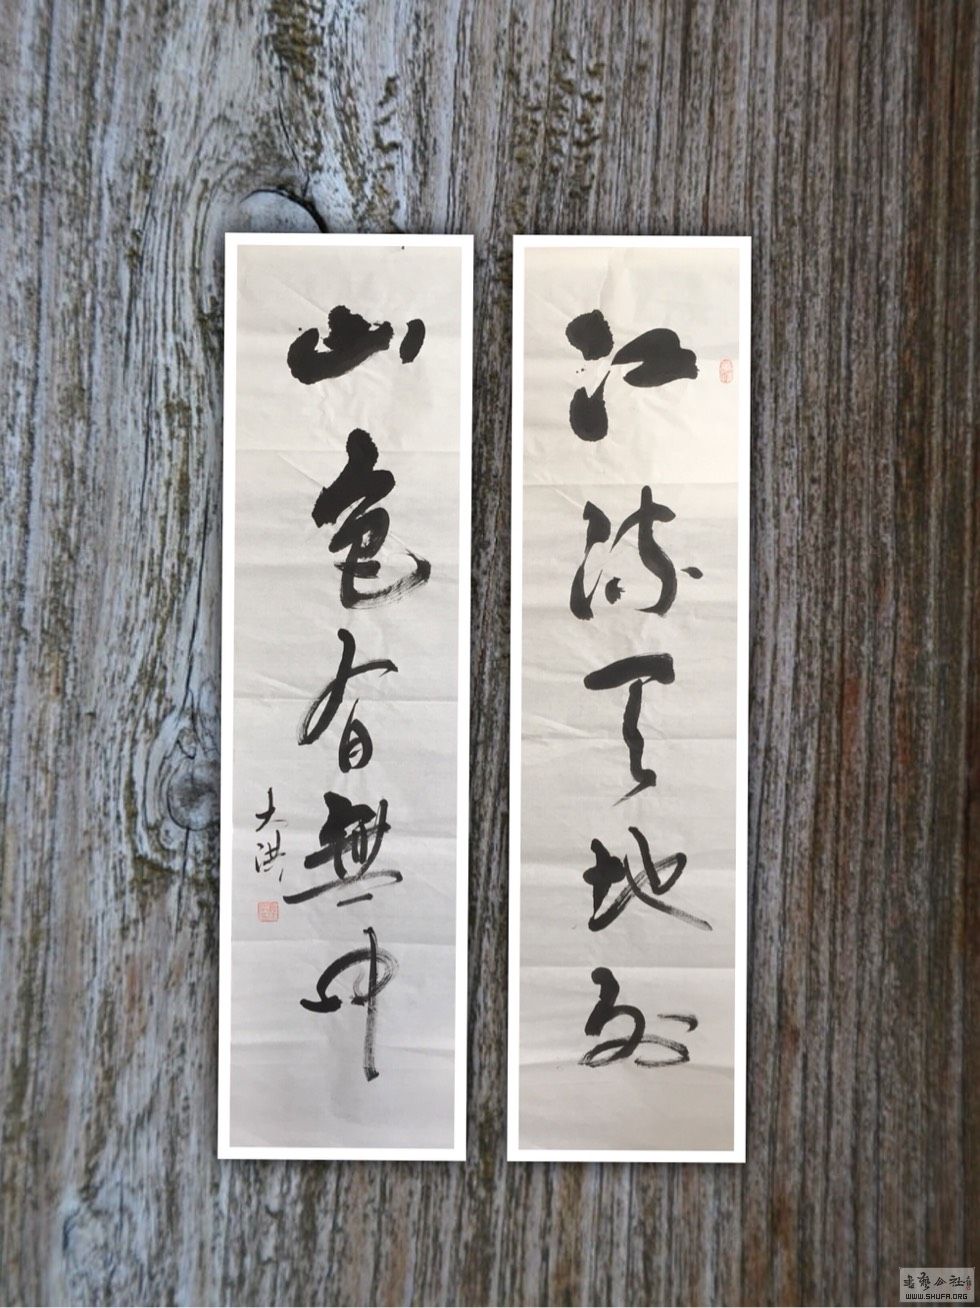 江流天地外
山色有無中
大洪
書艺公社
WWW.SHUFA.ORG